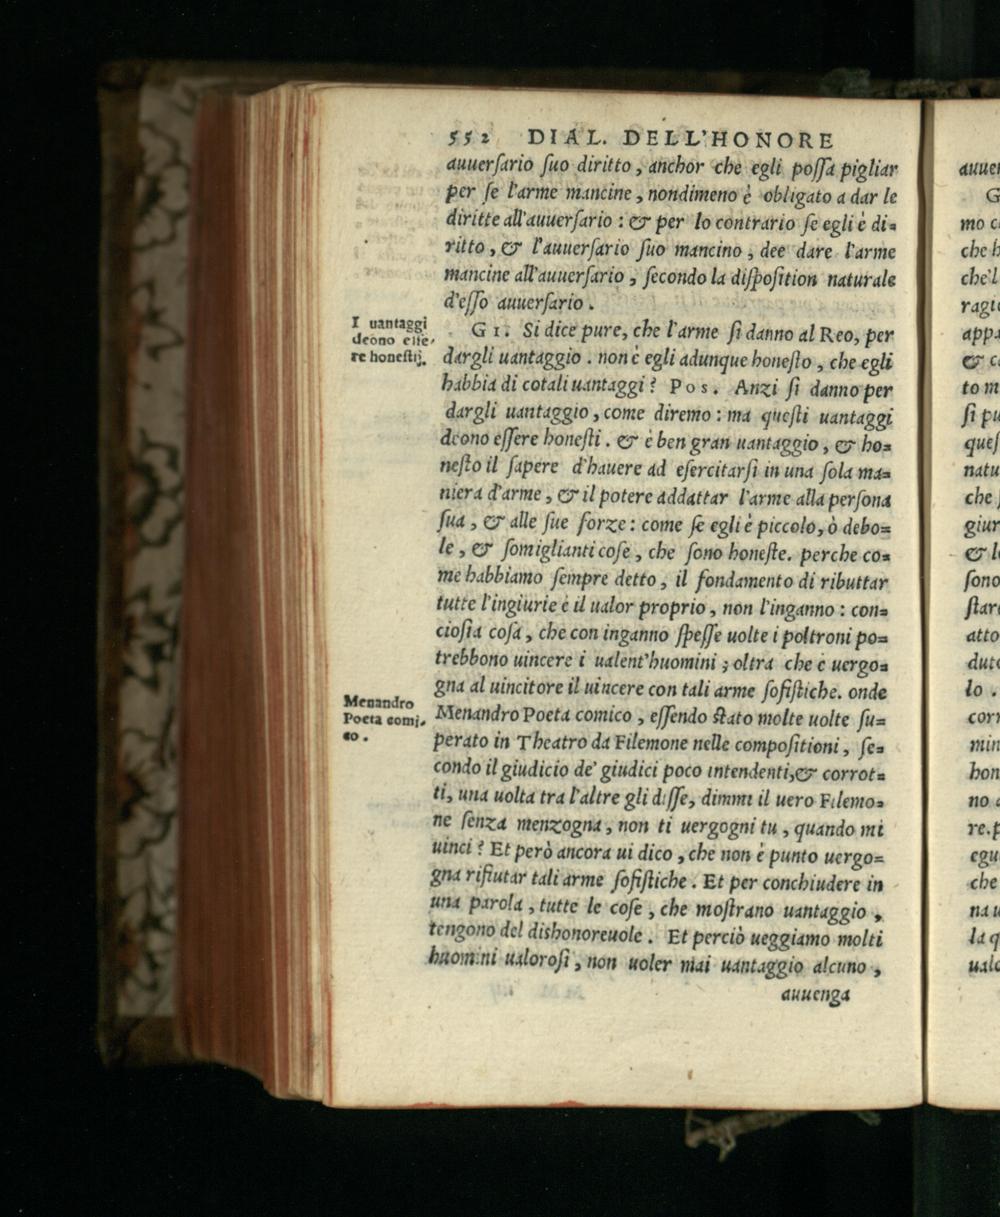 552 DIAL. DELL'HONORE
auuerſario ſuo diritto, anchor che egli poſſa pigliar
per ſe l'arme mancine, nondimeno è obligato a dar le
diritte all'auuerſario : & per lo contrario ſe egli è di=
ritto, & l'auuerſario ſuo mancino, dee dare l'arme
mancine all'auuerſario, ſecondo la diſpoſition naturale
d'eſſo auuerſario.
I uantaggi
deono eſſe,
re honeſtij.
GI. Si dice pure, che l'arme ſi danno al Reo, per
dargli uantaggio. non è egli adunque honeſto, che egli
habbia di cotali uantaggi? Pos. Anzi ſi danno per
dargli uantaggio, come diremo : ma queſti uantaggi
deono eſſere honeſti. & è ben gran uantaggio, & ho=
neſto il ſapere d'hauere ad eſercitarſi in una ſola ma=
niera d'arme, & il potere addattar l'arme alla perſona
ſua, & alle ſue forze : come ſe egli è piccolo, ò debo=
le, & ſomiglianti coſe, che ſono honeſte. perche co=
me habbiamo ſempre detto, il fondamento di ributtar
tutte l'ingiurie è il ualor proprio, non l'inganno : con=
cioſia coſa, che con inganno ſpeſſe uolte i poltroni po=
trebbono uincere i ualent'huomini ; oltra che è uergo=
gna al uincitore il uincere con tali arme ſofiſtiche. onde
Menandro
Poeta comi,
co.
Menandro Poeta comico, eſſendo ſtato molte uolte ſu=
perato in Theatro da Filemone nelle compoſitioni, ſe=
condo il giudicio de' giudici poco intendenti,& corrot=
ti, una uolta tra l'altre gli diſſe, dimmi il uero Filemo=
ne ſenza menzogna, non ti uergogni tu, quando mi
uinci? Et però ancora ui dico, che non è punto uergo=
gna rifiutar tali arme ſofiſtiche. Et per conchiudere in
una parola, tutte le coſe, che moſtrano uantaggio,
tengono del dishonoreuole. Et perciò ueggiamo molti
huomini ualoroſi, non uoler mai uantaggio alcuno,
auuenga
auuer
G
mo c
che h
che'l
ragi
app
& c
to m
ſi pu
queſ
natu
che
giur
& l
ſono
ſtar
atto
dut
lo.
corr
min
hon
no
re.p
egu
che
na u
la q
ualo